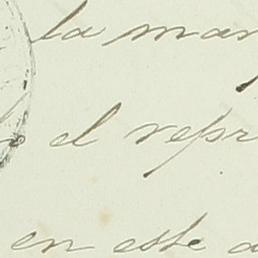 la man
el repr
en este a